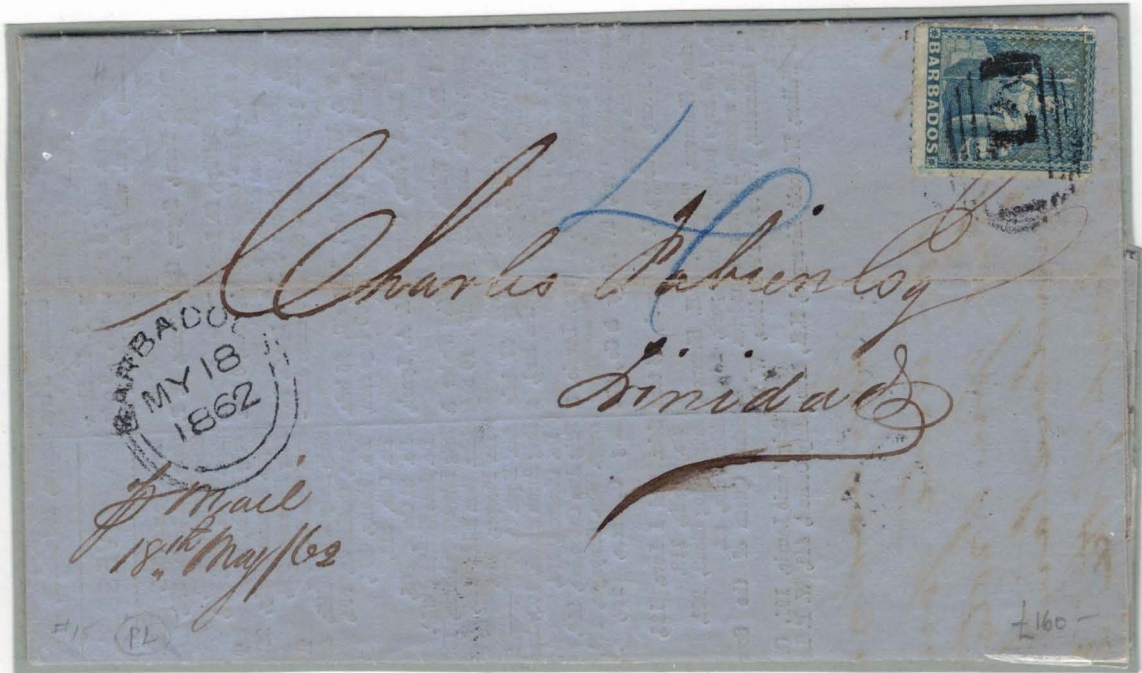 BARBADOS
1
4
Charles Fabien Esq
Trinidad
BARBADOS
MY 18
1862
p Mail
18th May/62
#15
PL
£160-